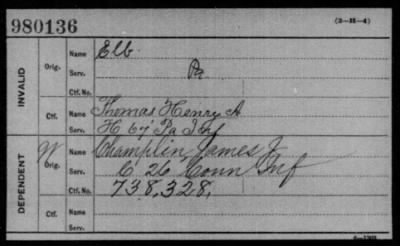 980136
(3-H-4)
INVALID
Orig.
Name Elb
Serv. Pa
Ctf. No.
Ctf.
Name Thomas Henry A
Serv. H 67' Pa Inf
DEPENDENT
W Orig.
Name Champlin James J
Serv. C 26 Conn Inf
Ctf. No. 738,328,
Ctf.
Name
Serv.